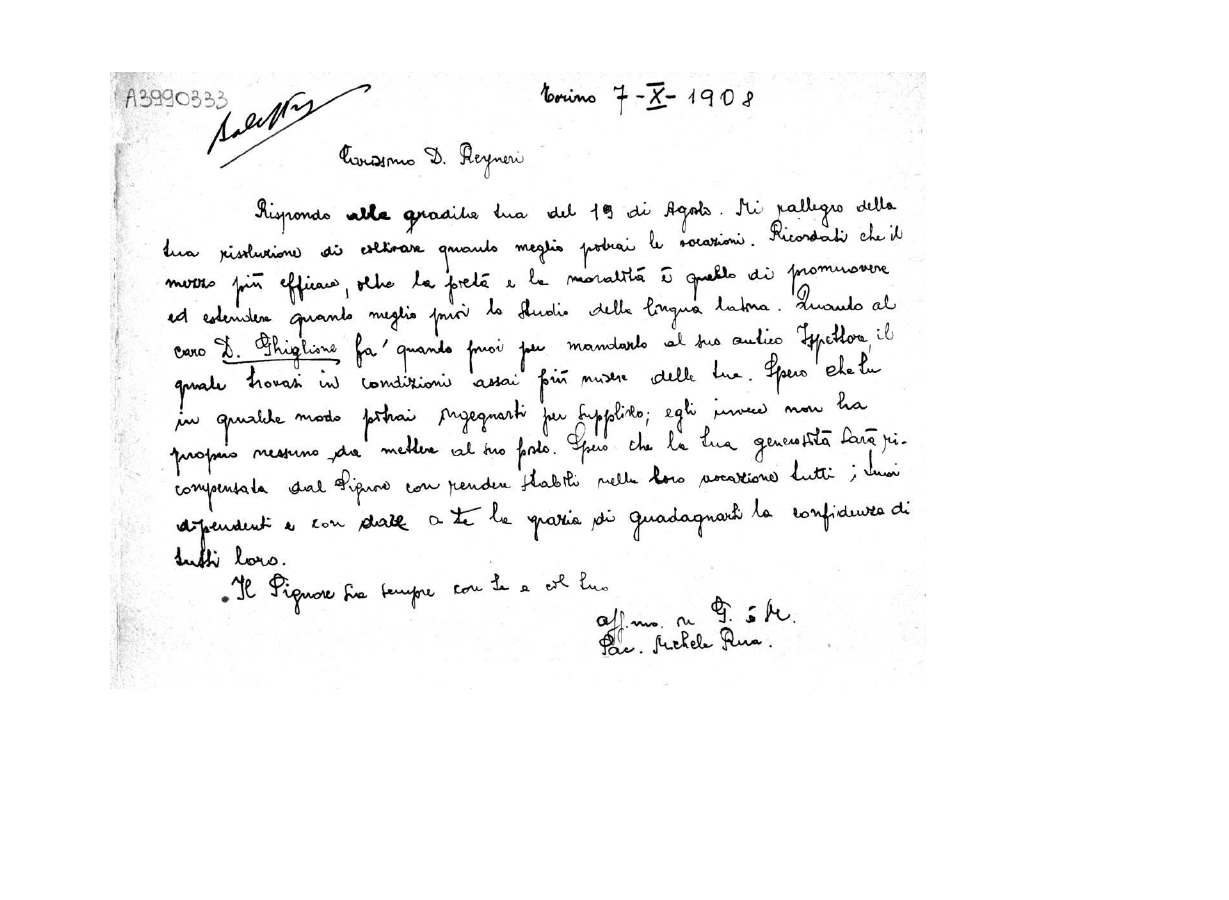 A3990333
Torino 7-X-1908
Carissimo D. Reyneri
Rispondo alla gradita tua del 19 di Agosto. Mi rallegro della
tua risoluzione di coltivare quanto meglio potrai le vocazioni. Ricordati che il
mezzo più efficace, oltre la pietà e la moralità è quello di promuovere
ed estendere quanto meglio puoi lo studio della lingua latina. Quanto al
caro D. Ghiglione fa' quando puoi per mandarlo al suo antico Ispettore, il
quale trovasi in condizioni assai più misere delle tue. Spero che tu
in qualche modo potrai ingegnarti per supplirlo; egli invece non ha
proprio nessuno da mettere al suo posto. Spero che la tua generosità sarà ri-
compensata dal Signore con rendere stabili nella loro vocazione tutti i tuoi
dipendenti e con dare a te la grazia di guadagnarti la confidenza di
tutti loro.
Il Signore sia sempre con te e col tuo
aff.mo in G. e M.
Sac. Michele Rua.